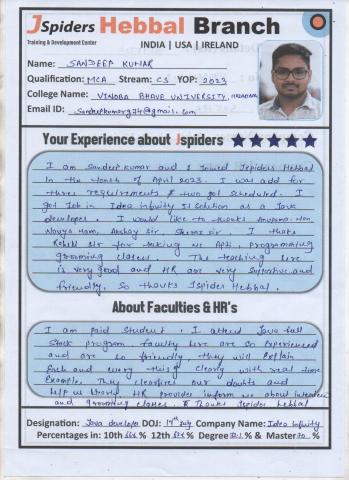 JSpiders Hebbal Branch
Training & Development Center
INDIA | USA | IRELAND
Name: SANDEEP KUMAR
Qualification: MCA Stream: CS YOP: 2023
College Name: VINOBA BHAVE UNIVERSITY, HAZARIBAG
Email ID:
Your Experience about Jspiders
I am Sandeep Kumar and I Joined Jspiders Hebbal
in the month of April 2023. I was add for
three requirements & two got scheduled. I
got Job in Idea infinity IT solution as a Java
developer. I would like to thanks Anupama Mam,
Navya Mam, Akshay Sir, Sir. I thanks
Rohit Sir for taking us Apti, programming
grooming classes. The teaching here
is very good and HR are very supportive and
friendly. So thanks Jspiders Hebbal.
About Faculties & HR's
I am paid student. I attend Java full
Stack program. Faculty here are so experienced
and are so friendly, they will explain
Each and every thing clearly with real time
Example. They clearifies our doubts and
help us HR provides inform us about interview
and grooming classes. Thanks Jspider Hebbal
Designation: Java develope DOJ: 17th July Company Name: Idea Infinity
Percentages in: 10th % 12th % Degree % & Master 70 %